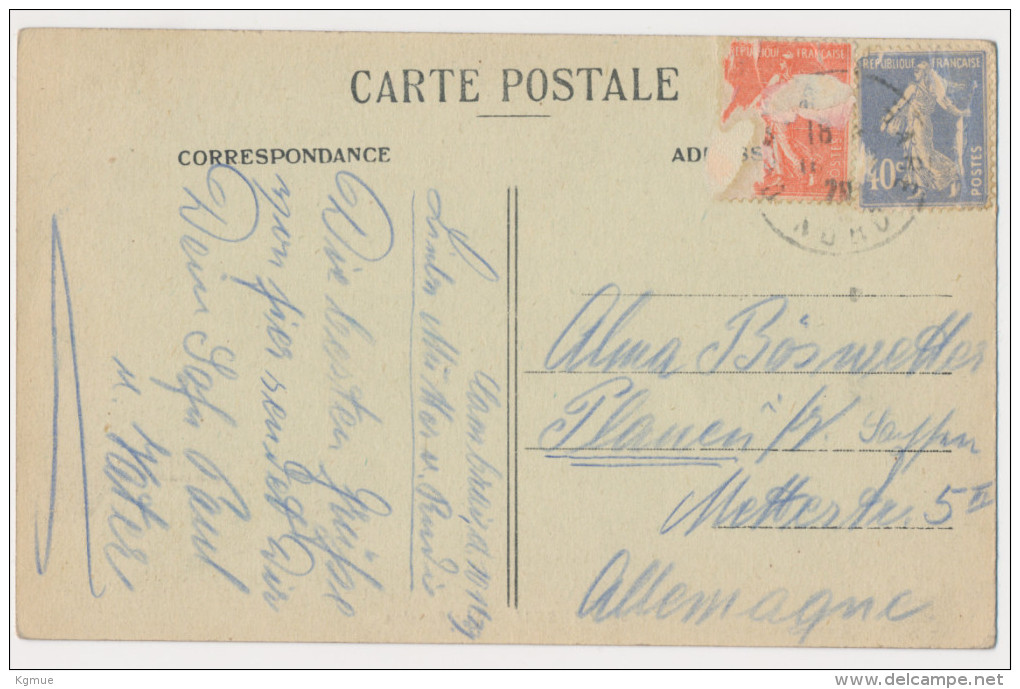 CARTE POSTALE
CORRESPONDANCE
REPUBLIQUE FRANÇAISE
POSTES
REPUBLIQUE FRANÇAISE
40c
POSTES
Liebe Mutter u.
Die besten Grüße
von hier sendet Dir
Dein Sohn Paul
u. Vater
Alma Böswetter
Plauen i/V.
5 II
Allemagne
Kgmue
delcampe.net